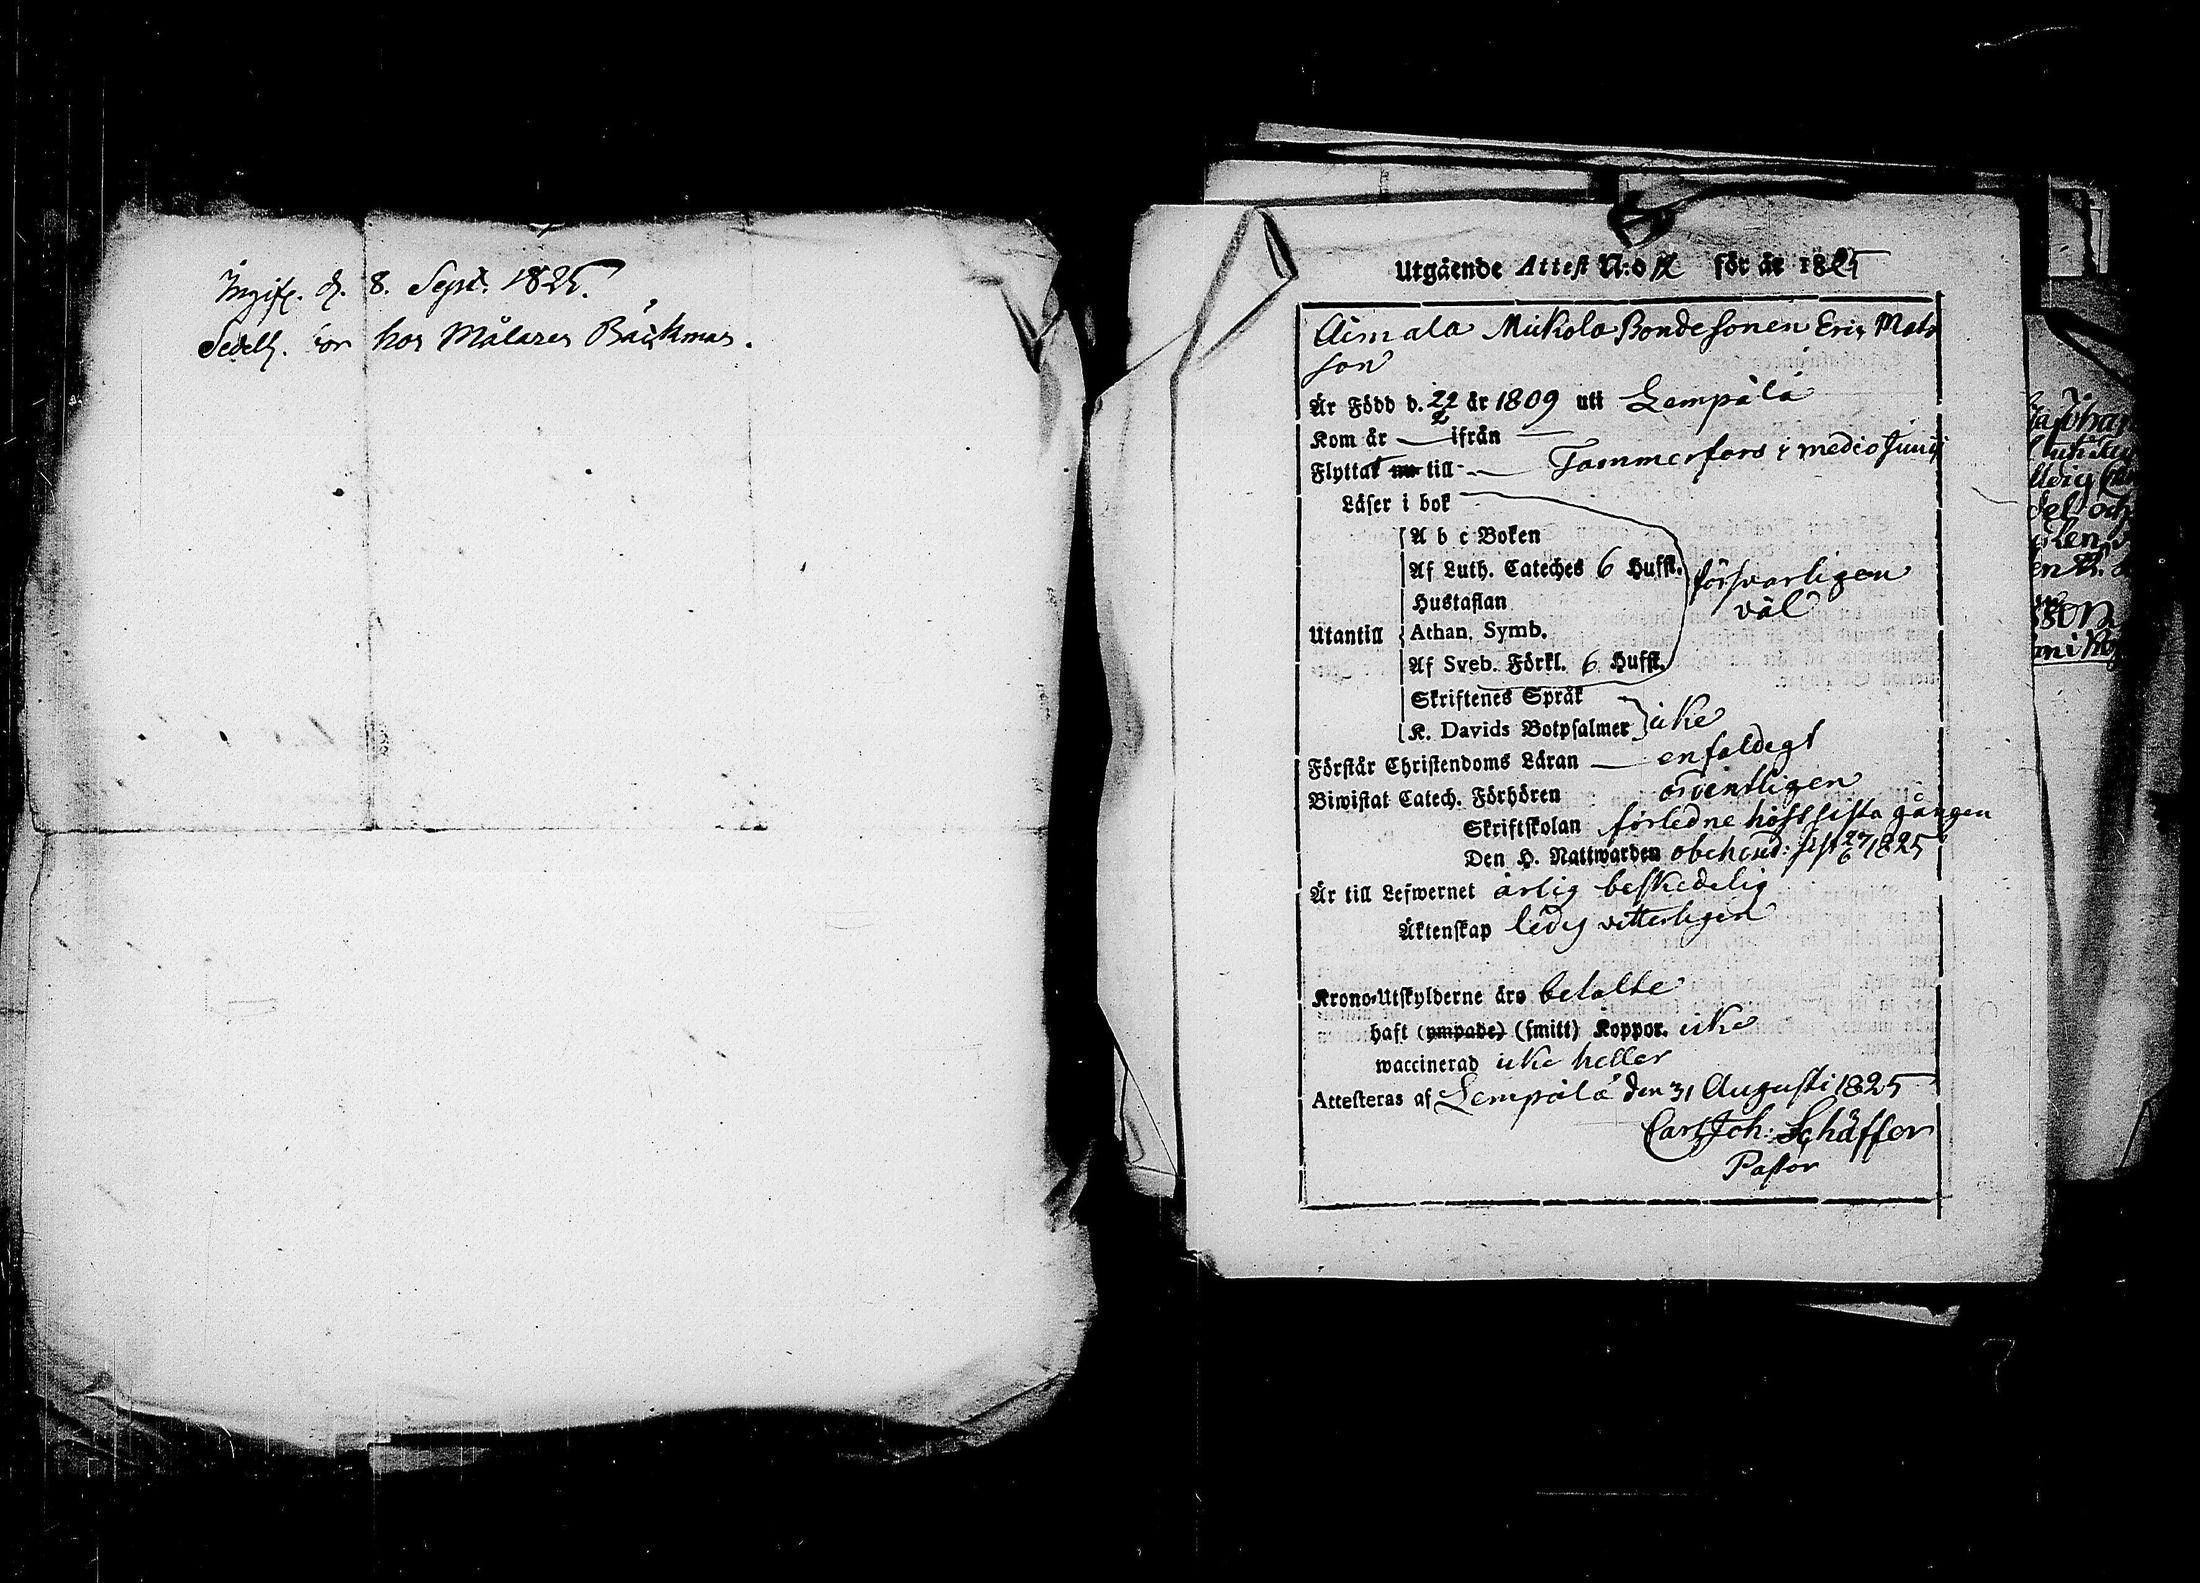 Ingif. d. 8. Sept. 1825.
Sedell. bor hos Målaren Bäckman.
Utgående Attest N:o 12 för år 1825
Aimala Mickola Bondesonen Eric Mats
son
Är Född d. 22/2 år 1809 uti Lempälä
Kom år — ifrån —
Flyttat nu till — Tammerfors i medio Junii
Läser i bok
A b c Boken
Af Luth. Cateches 6 Hufst. försvarligen
Hustaflan väl
Utantill Athan. Symb.
Af Sveb. Förkl. 6 Hufst.
Skriftenes Språk
K. Davids Botpsalmer icke
Förstår Christendoms Läran — enfaldigt
Biwistat Catech. Förhören ordentligen
Skriftskolan förledne höst sista gången
Den H. Nattwarden obehind: sist 27/6 1825
Är till Lefwernet ärlig beskedelig
Äktenskap ledig vitterligen
Krono-Utskylderne äro betalte
haft (ympade) (smitt) Koppor. icke
waccinerad icke heller
Attesteras af Lempälä den 31 Augusti 1825
Carl Joh: Schäffer
Pastor